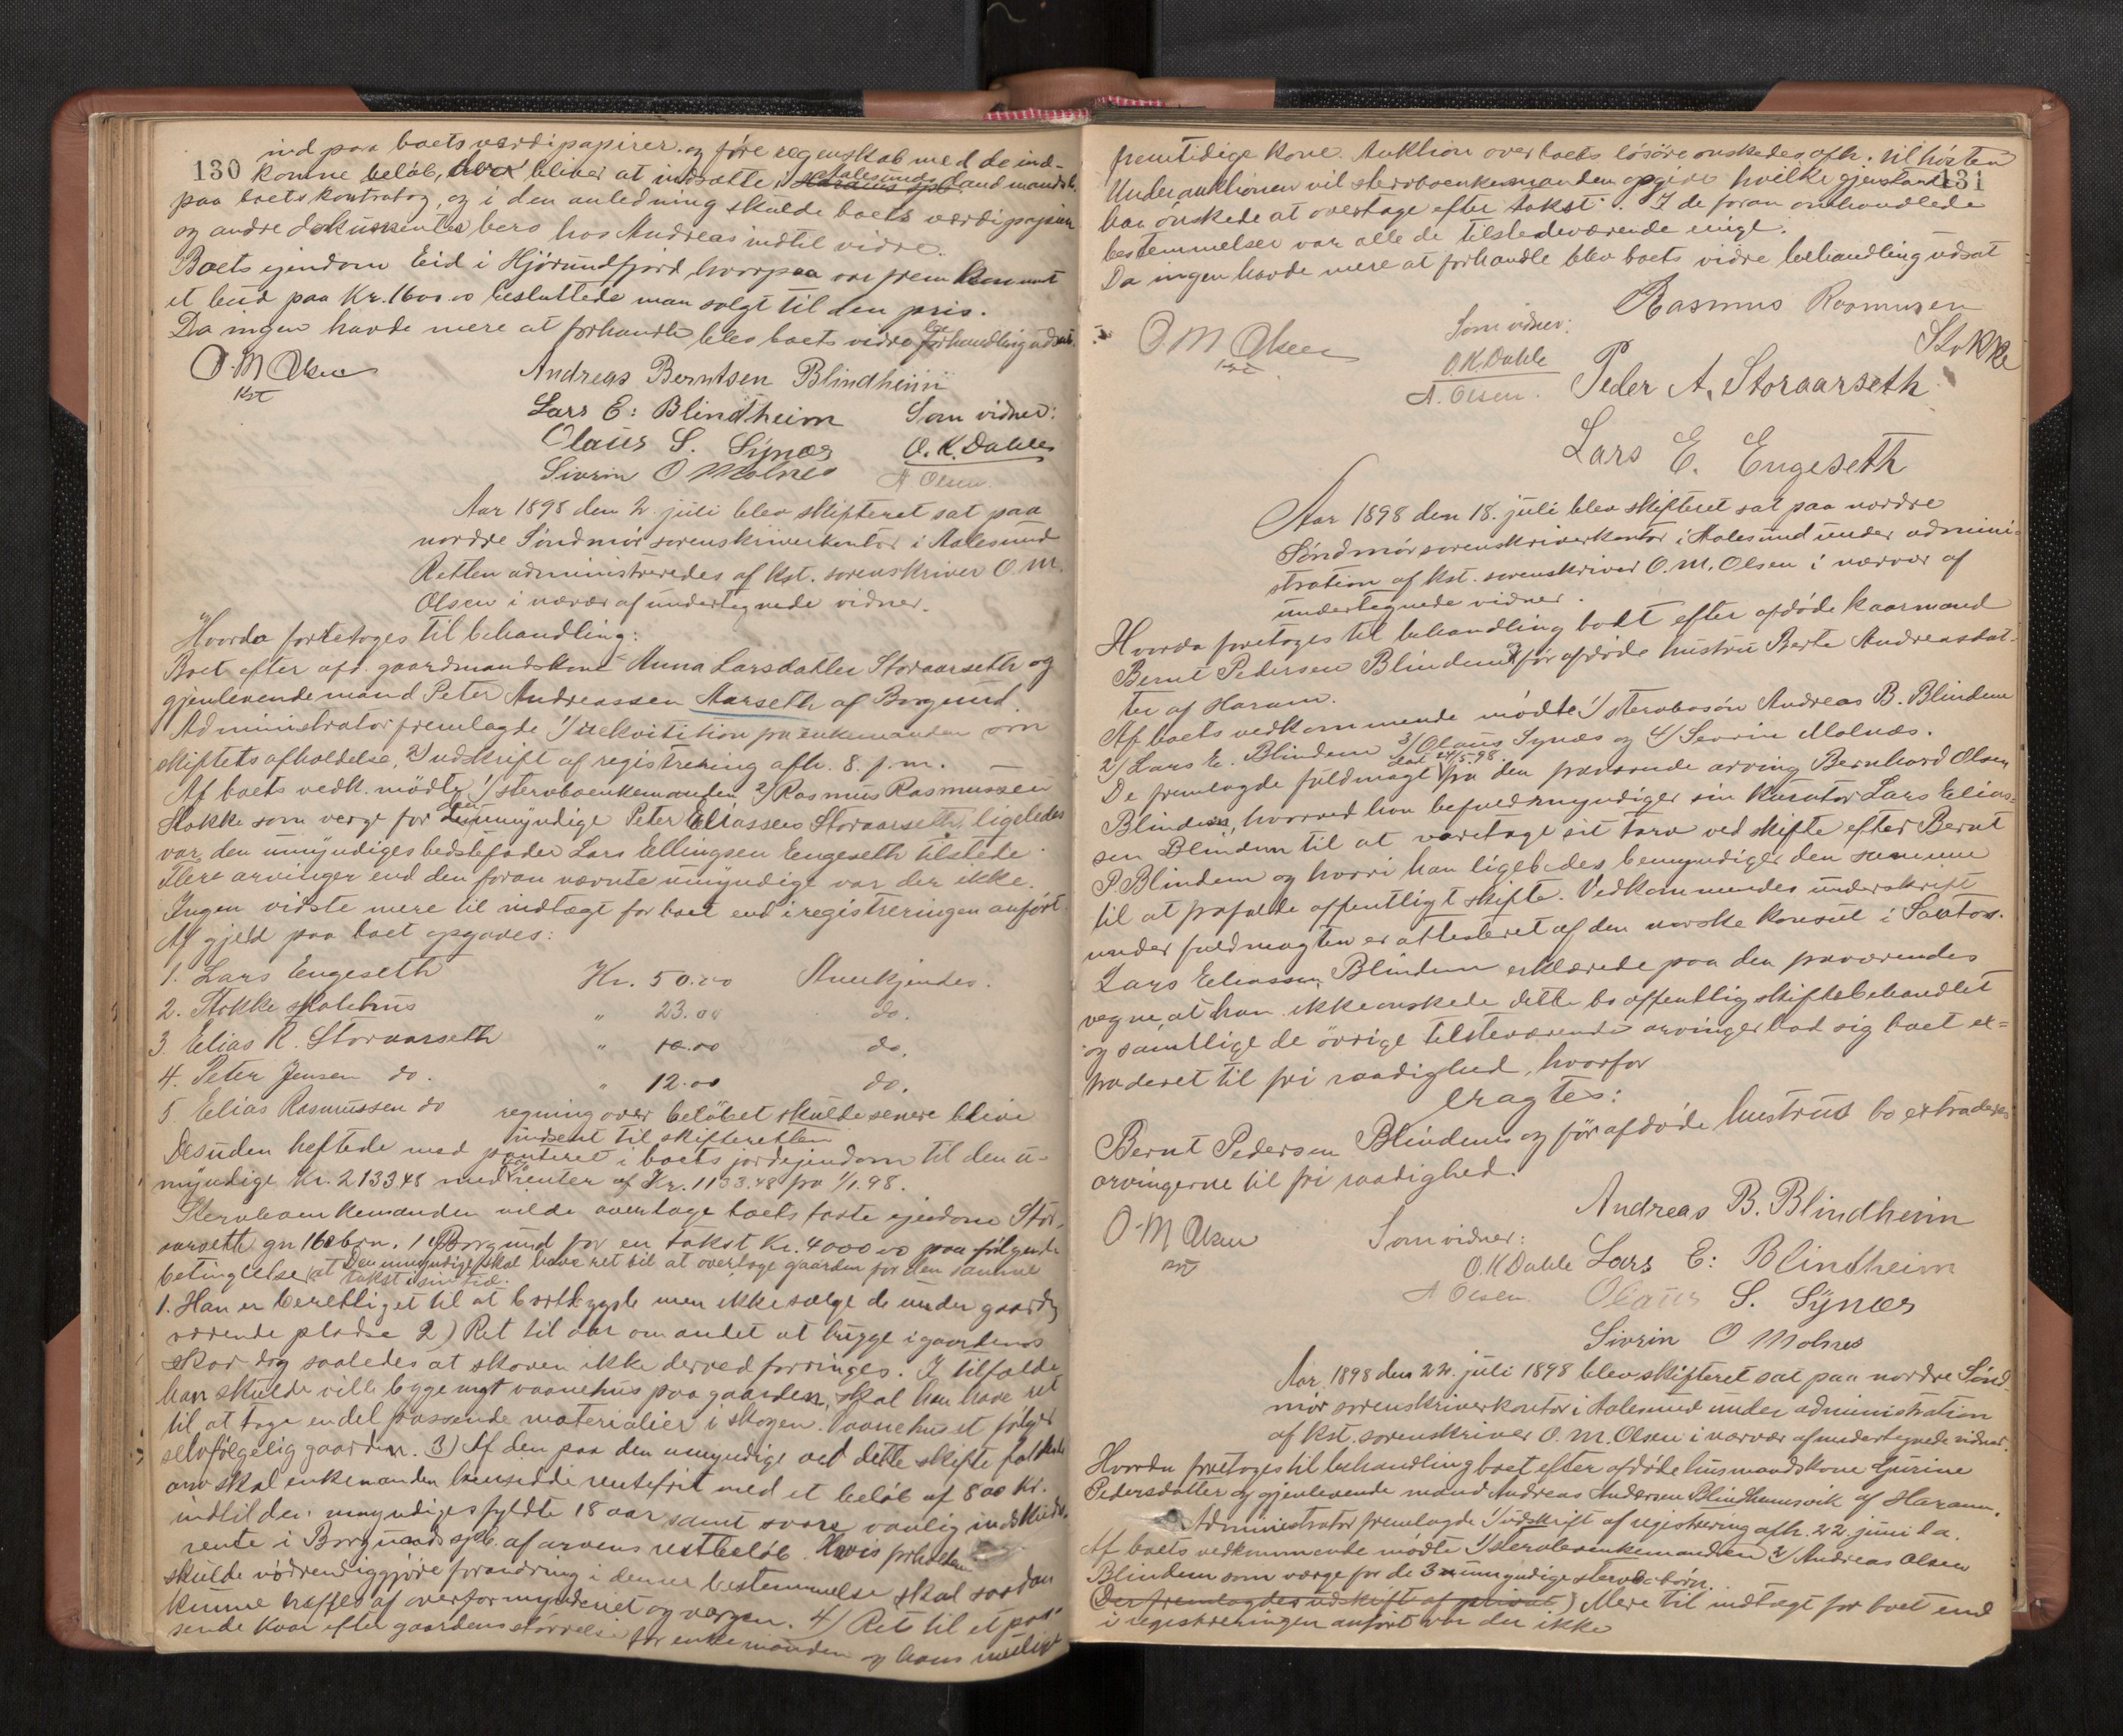 130
ind paa boets værdipapirer og føre regenskab med de ind-
komne beløb, der bliver at indsætte i Aalesunds Landmandsb.
paa boets kontrabog, og i den anledning skulde boets værdipapirer
og andre dokumenter bero hos Andreas indtil vidre.
Boets ejendom Eid i Hjørundfjord, hvorpaa var fremkommet
et bud paa Kr. 1600.00 besluttede man solgt til den pris.
Da ingen havde mere at forhandle blev boets vidre behandling udsat.
O. M. Olsen
kst
Andreas Berntsen Blindheim
Lars E: Blindheim Som vidner:
Olaus S. Synæs O. K. Dahle
Sivrin O Molnes A Olsen.
Aar 1898 den 2. juli blev skifteret sat paa
nordre Søndmør sorenskriverkontor i Aalesund
Retten administreredes af kst. sorenskriver O. M.
Olsen i nærvær af undertegnede vidner.
Hvorda foretoges til behandling:
Boet efter afd. gaardmandskone Anna Larsdatter Storaarseth og
gjenlevende mand Peter Andreassen Aarseth af Borgund.
Administrator fremlagde 1/ rekvisition fra enkemanden om
skiftets afholdelse, 2/ udskrift af registrering afh. 8. f. m. —
Af boets vedk. mødte 1/ stervboenkemanden 2/ Rasmus Rasmussen
Stokke som verge for den umyndige Peter Eliassen Storaarseth, ligeledes
var den umyndiges bedstefader Lars Ellingsen Engeseth tilstede.
Flere arvinger end den foran nævnte umyndige var der ikke.
Ingen vidste mere til indtægt for boet end i registreringen anført.
Af gjeld paa boet opgaves:
1. Lars Engeseth Kr. 50.00 Anerkjendes.
2. Stokke skolehus " 23.00 do.
3. Elias R. Storaarseth " 10.00 do.
4. Peter Jensen do. " 12.00 do.
5. Elias Rasmussen do regning over beløbet skulde senere blive
indsent til skifteretten
Desuden heftede med panteret i boets jordejendom til den u-
myndige Kr. 2133.48 med renter af Kr. 1133.48 fra 1/1.98.
Stervboenkemanden vilde overtage boets faste ejendom Stor-
aarseth gn 16 brn. 1 i Borgund for en takst Kr. 4000.00 paa følgende
betingelse, at Den umyndige skal have ret til at overtage gaarden for den samme
takst i sin tid.
1. Han er berettiget til at bortbygsle men ikke sælge de under gaarden
værende pladse 2) Ret til aar om andet at hugge i gaardens
skov dog saaledes at skoven ikke derved forringes. I tilfælde
han skulde ville bygge nyt vaanehus paa gaarden, skal han have ret
til at tage endel passende materialier i skogen. Vaanehuset følger
selvfølgelig gaarden. 3) Af den paa den umyndige ved dette skifte faldende
arv skal enkemanden hensidde rentefrit med et beløb af 800 Kr.
indtil den umyndiges fyldte 18 aar samt svare vanlig indskuds-
rente i Borgunds spb. af arvens restbeløb. Hvis forholdene
skulde nødvendiggjøre forandring i denne bestemmelse skal saadan
kunne træffes af overformynderiet og vergen. 4) Ret til et pas-
sende kaar efter gaardens størrelse for enkemanden og hans mulige
131
fremtidige kone. Auktion over boets løsøre onskedes afh. til høsten
Under auktionen vil stervboenkemanden opgive hvilke gjenstande
han ønskede at overtage efter takst. I de foran omhandlede
bestemmelser var alle de tilstedeværende enige.
Da ingen havde mere at forhandle blev boets vidre behandling udsat
Rasmus Rasmusen
Stokke
O. M Olsen
kst
Som vidner:
O K Dahle
A. Olsen.
Peder A. Storaarseth
Lars E. Engeseth
Aar 1898 den 18. juli blev skifteret sat paa nordre
Søndmør sorenskriverkontor i Aalesund under admini-
stration af kst. sorenskriver O. M. Olsen i nærvær af
undertegnede vidner.
Hvorda foretoges til behandling boet efter afdøde kaarmand
Bernt Pedersen Blindem og før afdøde hustru Berte Andreasdat-
ter af Haram.
Af boets vedkommende mødte 1/ stervbosøn Andreas B. Blindem
2/ Lars E. Blindem 3/ Olaus Synæs og 4/ Sevrin Molnæs.
De fremlagde fuldmagt dat 24/5-98 fra den fraværende arving Bernhard Olsen
Blindem, hvorved han befuldmyndiger sin kurator Lars Elias-
sen Blindem til at varetage sit tarv ved skifte efter Bernt
P. Blindem og hvori han ligeledes bemyndiger den samme
til at frafalde offentligt skifte. Vedkommendes underskrift
under fuldmagten er attesteret af den norske konsul i Santos.
Lars Eliassen Blindem erklærede paa den fraværendes
vegne, at han ikke onskede dette bo offentlig skiftebehandlet
og samtlige de øvrige tilsteværende arvinger bad sig boet ex-
traderet til fri raadighed, hvorfor
eragtes:
Bernt Pedersen Blindems og før afdøde hustrus bo extraderes
arvingerne til fri raadighed.
Andreas B. Blindheim
O. M Olsen
kst
Som vidner:
O. K Dahle Lars E: Blindheim
A Olsen. Olaus S. Synæs
Sivrin O Molnes
Aar 1898 den 22. juli 1898 blev skifteret sat paa nordre Sønd-
mør sorenskriverkontor i Aalesund under administration
af kst. sorenskriver O. M. Olsen i nærvær af undertegnede vidner.
Hvorda foretoges til behandling boet efter afdøde husmandskone Gurine
Pedersdatter og gjenlevende mand Andreas Andersen Blindheimsvik af Haram.
Administrator fremlagde 1/ udskrift af registrering afh. 22 juni d.a.
Af boets vedkommende mødte 1/ stervboenkemanden 2/ Andreas Olsen
Blindem som værge for de 3 umyndige stervbobørn.
(Der fremlagdes udskift af privat) Mere til indtægt for boet end
i registreringen anført var der ikke